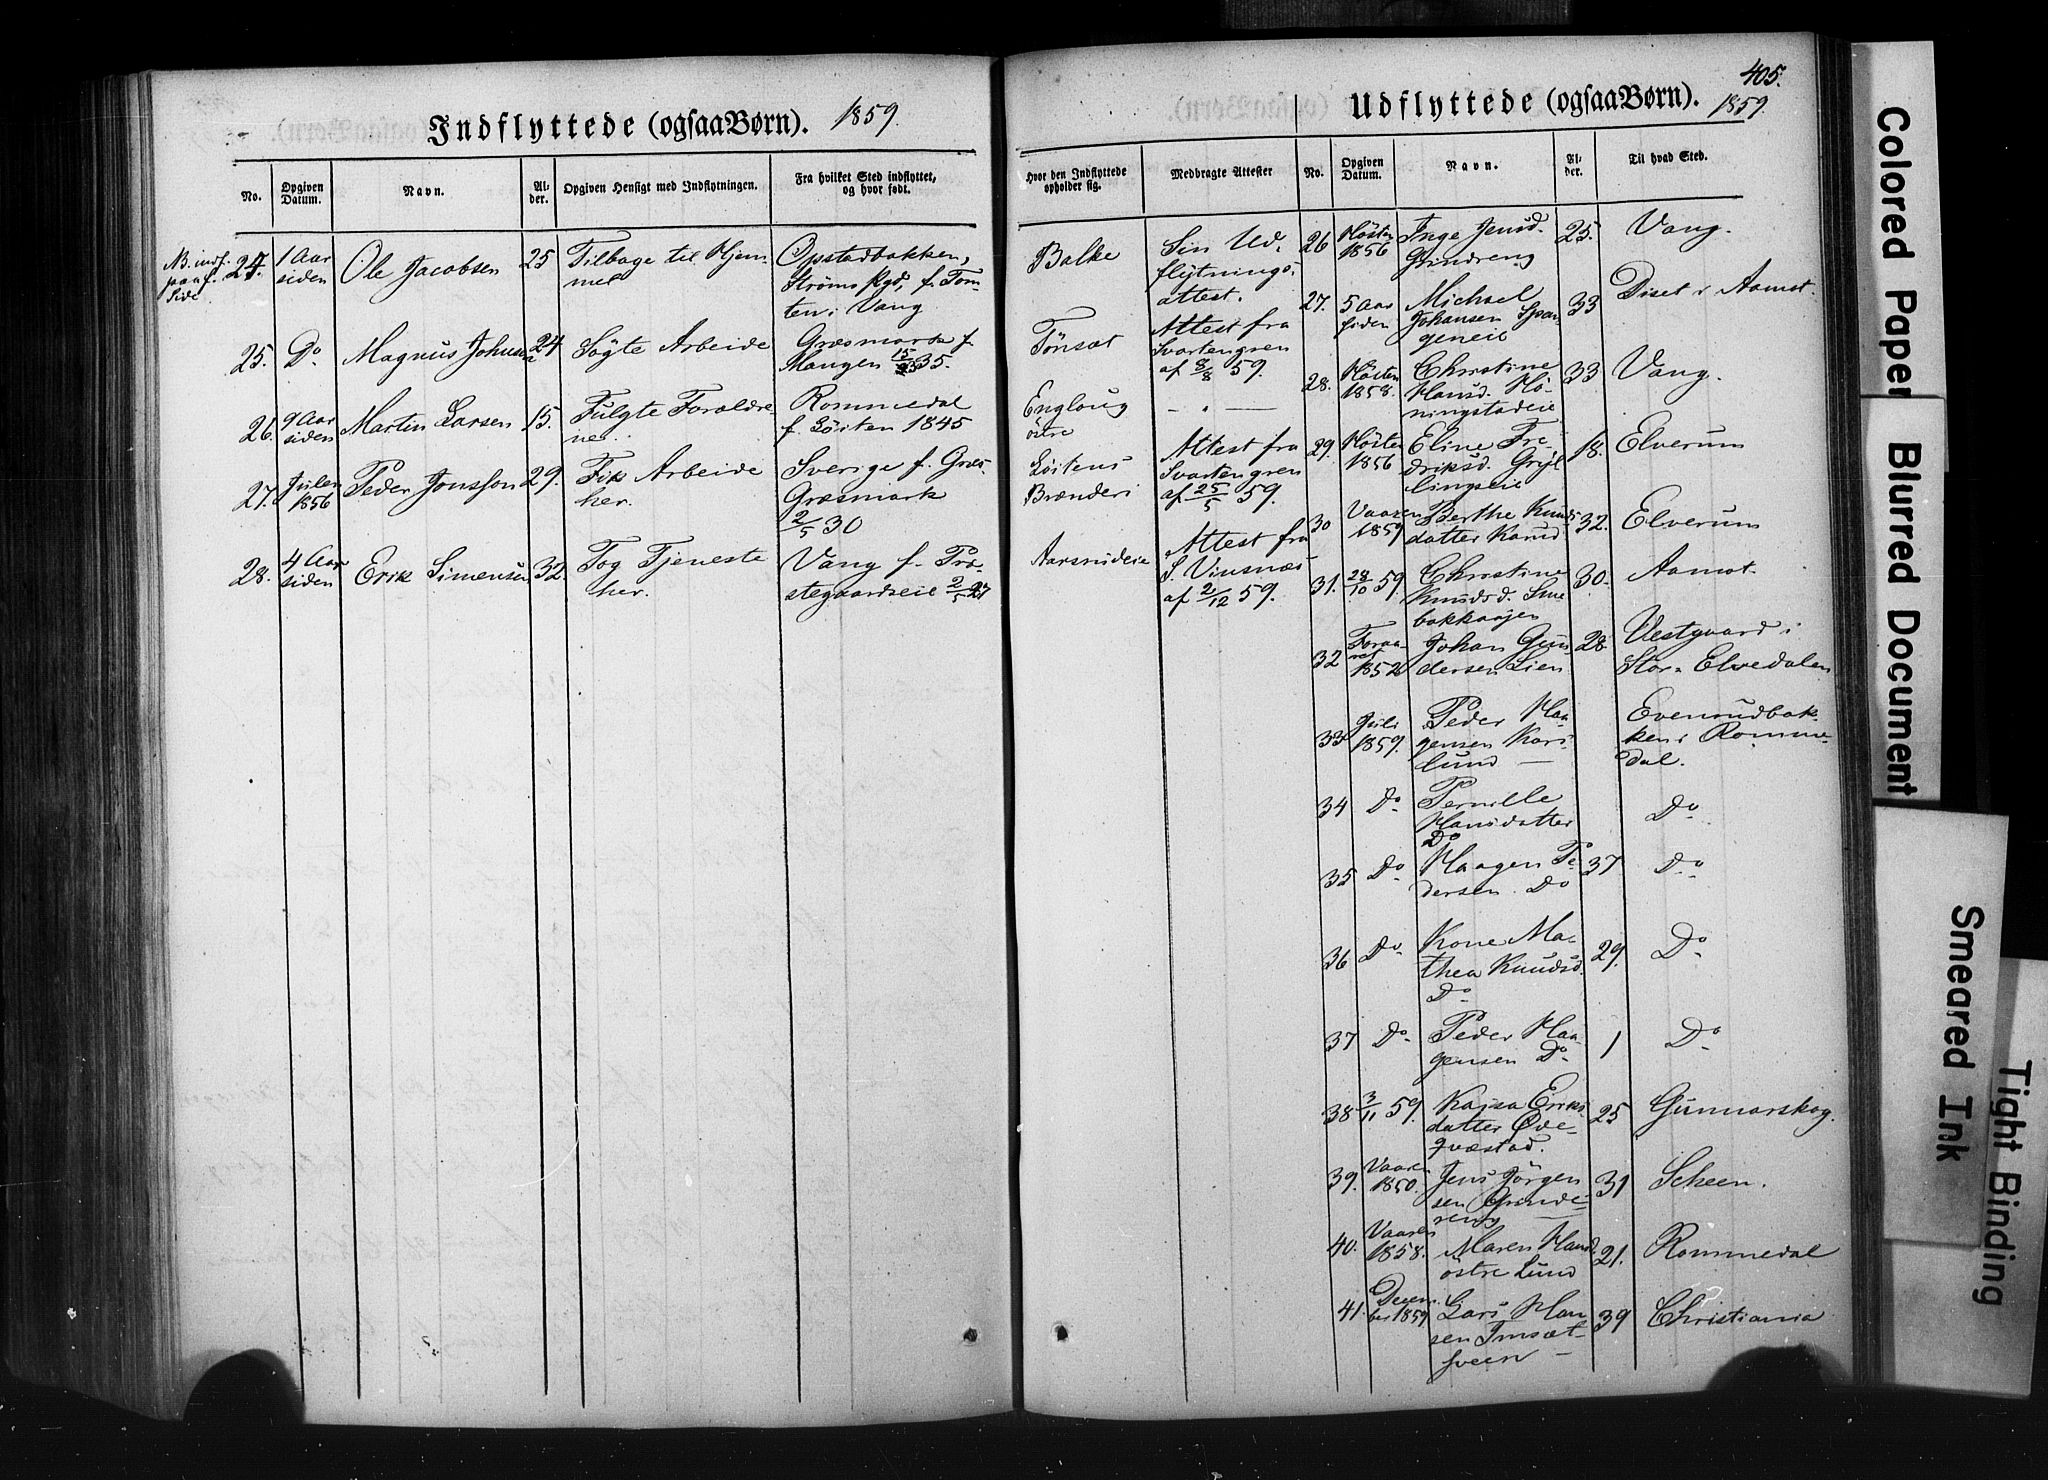 405.
Indflyttede (ogsaa Børn). 1859.
No.
Opgiven Datum.
Navn.
Alder.
Opgiven Hensigt med Indflytningen.
Fra hvilket Sted indflyttet, og hvor født.
Hvor den Indflyttede opholder sig.
Medbragte Attester
24. 1 Aar siden Ole Jacobsen 25 Tilbage til Hjemmet Opstadbakken, Strøms Pgd, f. Tomten i Vang Balke Sin Udflytnings attest.
25. Do Magnus Johnsen 24 Søgte Arbeide Græsmark f. Mangen 15/35. Tønsæt Attest fra Svartengren af 8/8 59.
26. 9 Aar siden Martin Larsen 15. Fulgte Forældrene. Rommedal f. Løiten 1845 Englaug østre — " —
27. Julen 1856 Peder Jonsson 29. Fik Arbeide her. Sverige f. Græs Græsmark 2/5 30 Løitens Brænderi Attest fra Svartengren af 25/5 59.
28. 4 Aar siden Erik Simensen 32. Tog Tjeneste her. Vang f. Præstegaardseie 2/5 27 Aarsrudeie Attest fra S. Vinsnæs af 2/12 59.
Udflyttede (ogsaa Børn). 1859
No.
Opgiven Datum.
Navn.
Alder.
Til hvad Sted.
26 Høsten 1856 Inge Jensd. Grindreng 25. Vang.
27. 5 Aar siden Michael Johansen Spangeneie 33 Diset i Aamot.
28. Høsten 1858. Christine Hansd. Høningstadeie 33 Vang.
29. Høsten 1856 Eline Fredriksd. Gryllingseie 18. Elverum
30 Vaaren 1859 Berthe Knudsdatter Karud 32. Elverum
31. 28/10 59. Christine Knudsd. Smebakkaajen 30. Aamot.
32 Foraaret 1852 Johan Gundersen Lien 28 Vestgaard i Stor-Elvedalen
33 Juli 1859. Peder Haagensen Karslund — Evensudbakken i Rommedal.
34 Do Pernille Hansdatter Do Do
35 Do Haagen Pedersen Do 37 Do
36 Do Kone Mathea Knudsd. Do 29. Do
37 Do Peder Haagensen Do 1 Do
38 3/11 59. Kajsa Eriksdatter Ødeqvæstad. 25 Gunnarskog.
39. Vaaren 1850. Jens Jörgensen Grindereng 31 Scheen.
40. Vaaren 1858. Maren Hansd. østre Lund 21. Rommedal
41. December 1859 Lars Hansen Imsætsveen — 39 Christiania
Colored Paper
Blurred Document
Smeared Ink
Tight Binding